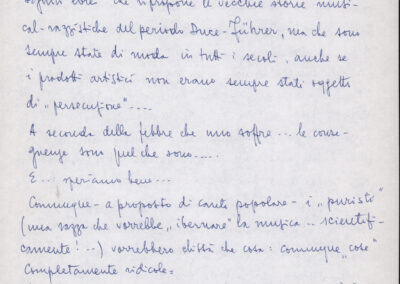 che ripropone le vecchie storie musi-
cal-razzistiche del periodo Duce-Führer, ma che sono
sempre state di moda in tutti i secoli, anche se
i prodotti artistici non erano sempre stati oggetti
di "persecuzione"....
A seconda della febbre che uno soffre... le conse-
guenze sono quel che sono.....
E... speriamo bene...
Comunque - a proposito di canto popolare - i "puristi"
(una razza che vorrebbe "ibernare" la musica.. scientifi-
camente!..) vorrebbero chissà che cosa: comunque "cose"
completamente ridicole =